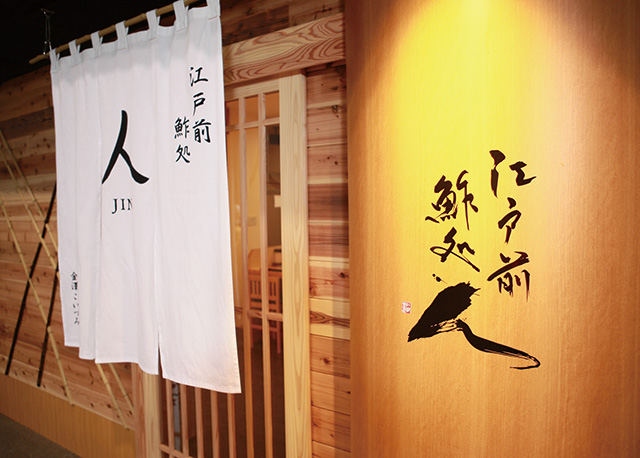 江戸前
鮓処
人
JIN
金澤 こいづみ
江戸前
鮓処
人